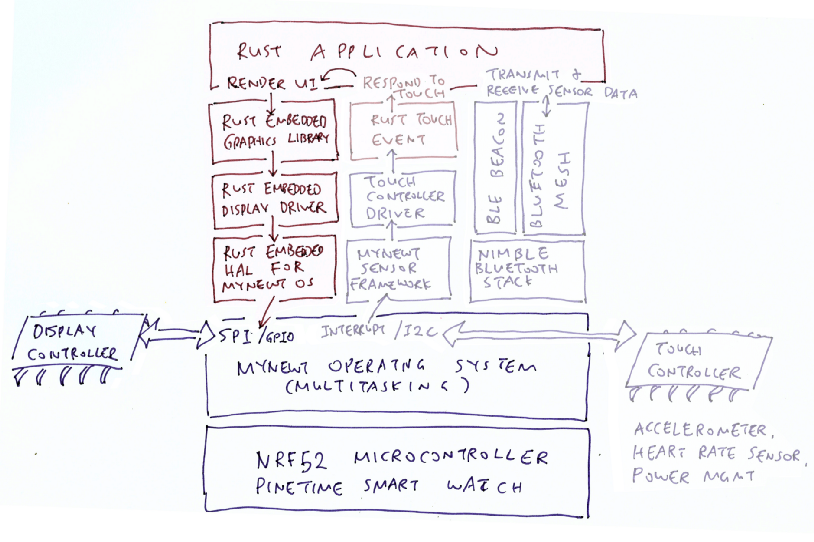 RUST APPLICATION
RENDER UI
RESPOND TO
TOUCH
TRANSMIT &
RECEIVE SENSOR DATA
RUST EMBEDDED
GRAPHICS LIBRARY
RUST TOUCH
EVENT
BLE BEACON
BLUETOOTH
MESH
RUST EMBEDDED
DISPLAY DRIVER
TOUCH
CONTROLLER
DRIVER
RUST EMBEDDED
HAL FOR
MYNEWT OS
MYNEWT
SENSOR
FRAMEWORK
NIMBLE
BLUETOOTH
STACK
DISPLAY
CONTROLLER
SPI/GPIO
INTERRUPT/I2C
TOUCH
CONTROLLER
MYNEWT OPERATNG SYSTEM
(MULTITASKING)
ACCELEROMETER,
HEART RATE SENSOR,
POWER MGMT
NRF52 MICROCONTROLLER
PINETIME SMART WATCH